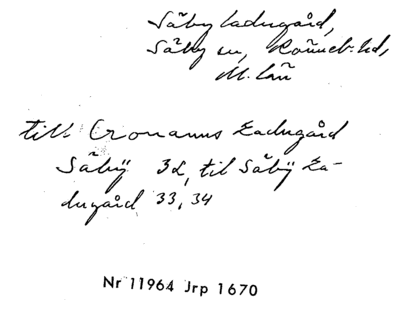 Säby ladugård,
Säby sn, Rönneb. hd,
M. län
till. Cronanns Ladugård
Säbÿ 32, til Säbÿ La-
dugård 33, 34
Nr 11964 Jrp 1670